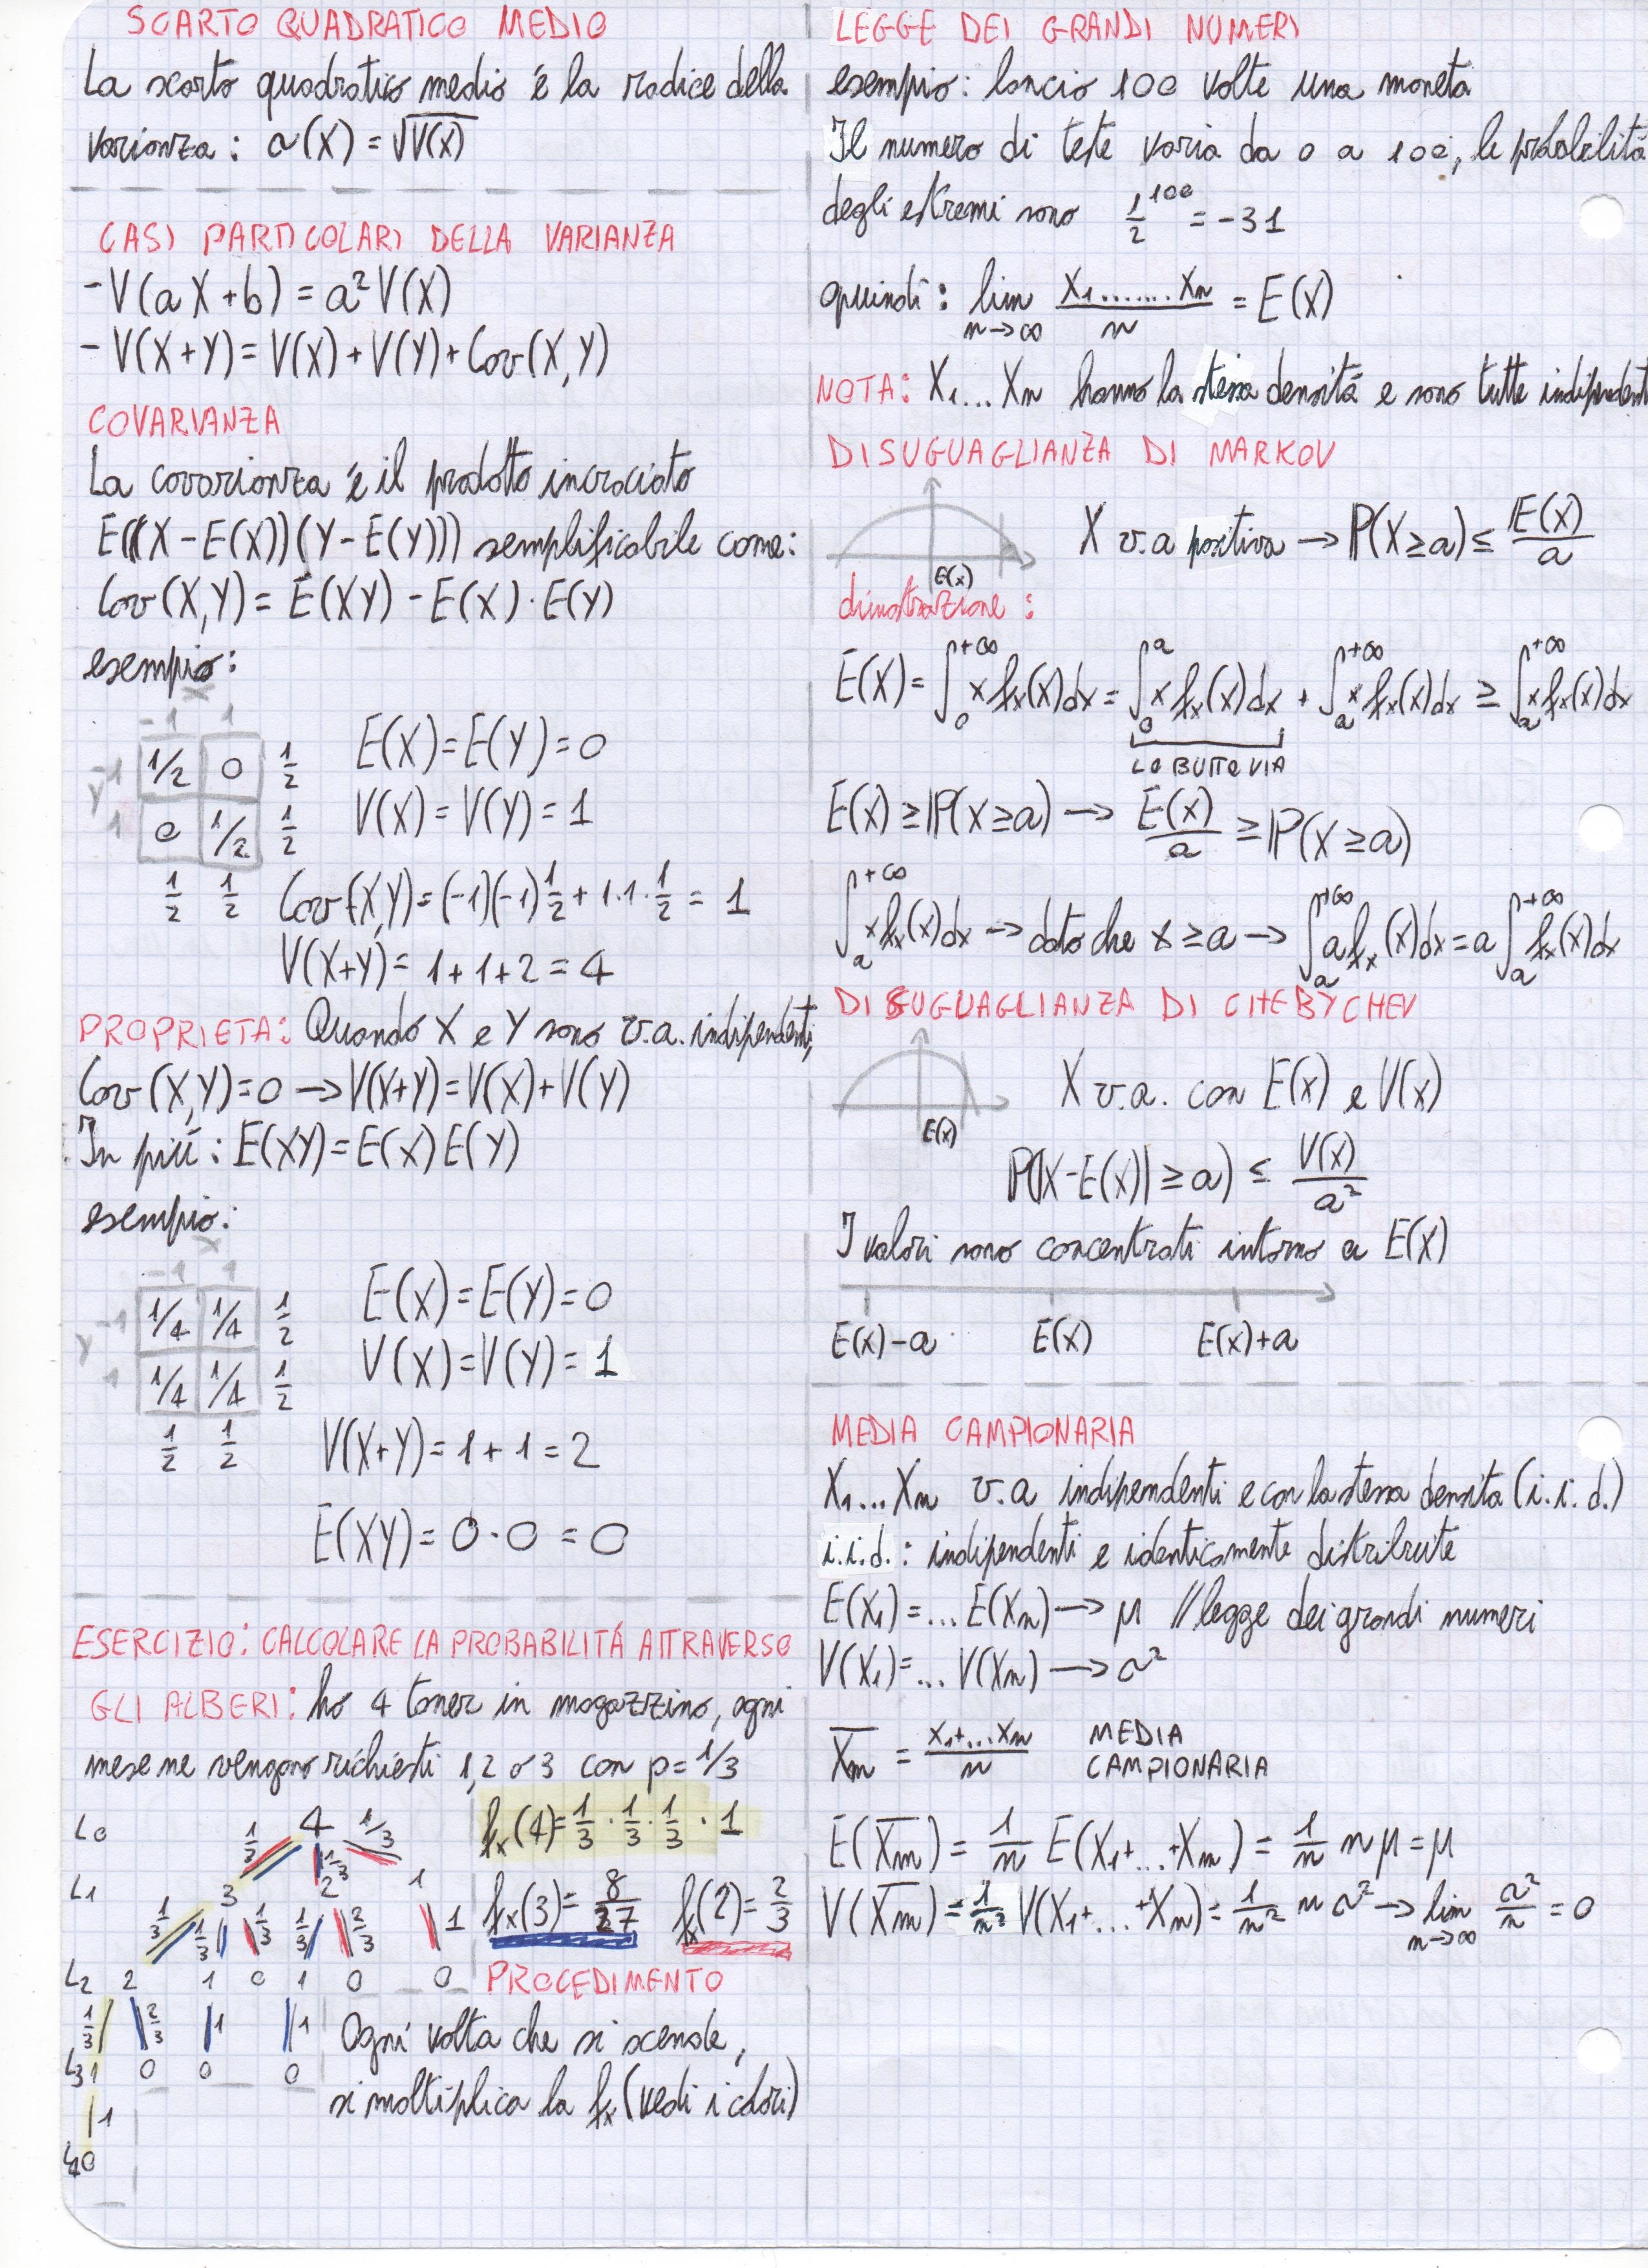 SCARTO QUADRATICO MEDIO
La scarto quadratico medio é la radice della
varianza: σ(X) = √V(X)
CASI PARTICOLARI DELLA VARIANZA
- V(aX+b) = a²V(X)
- V(X+Y) = V(X) + V(Y) + Cov(X,Y)
COVARIANZA
La covarianza é il prodotto incrociato
E((X-E(X))(Y-E(Y))) semplificabile come:
Cov(X,Y) = E(XY) - E(X)·E(Y)
esempio:
x
-1 1
-1 1/2 0 1/2
y
1 0 1/2 1/2
1/2 1/2
E(X)=E(Y)=0
V(X)=V(Y)=1
Cov(X,Y)=(-1)(-1)1/2+1·1·1/2=1
V(X+Y)=1+1+2=4
PROPRIETA: Quando X e Y sono v.a. indipendenti,
Cov(X,Y)=0 → V(X+Y)=V(X)+V(Y)
In piú: E(XY)=E(X)E(Y)
esempio:
x
-1 1
-1 1/4 1/4 1/2
y
1 1/4 1/4 1/2
1/2 1/2
E(X)=E(Y)=0
V(X)=V(Y)=1
V(X+Y)=1+1=2
E(XY)=0·0=0
ESERCIZIO: CALCOLARE LA PROBABILITÁ ATTRAVERSO
GLI ALBERI: ho 4 toner in magazzino, ogni
mese ne vengono richiesti 1,2 o 3 con p=1/3
L0 4
1/3 1/3 1/3
L1 3 2 1
1/3 1/3 1/3 1/3 2/3 1
L2 2 1 0 1 0 0
1/3 2/3 1 1
L3 1 0 0 0
1
L4 0
fx(4)=1/3·1/3·1/3·1
fx(3)=8/27 fx(2)=2/3
PROCEDIMENTO
Ogni volta che si scende,
si moltiplica la fx (vedi i colori)
LEGGE DEI GRANDI NUMERI
esempio: lancio 100 volte una moneta
Il numero di teste varia da 0 a 100, le probabilitá
degli estremi sono 1/2^100 = -31
quindi: lim n→∞ X1.......Xn/n = E(X)
NOTA: X1...Xn hanno la stessa densitá e sono tutte indipendent
DISUGUAGLIANZA DI MARKOV
E(X)
X v.a positiva → P(X≥a) ≤ E(X)/a
dimostrazione:
E(X) = ∫0^+∞ x fx(x)dx = ∫0^a x fx(x)dx + ∫a^+∞ x fx(x)dx ≥ ∫a^+∞ x fx(x)dx
LO BUTTO VIA
E(X) ≥ P(X≥a) → E(X)/a ≥ P(X≥a)
∫a^+∞ x fx(x)dx → dato che x≥a → ∫a^+∞ a fx(x)dx = a ∫a^+∞ fx(x)dx
DISUGUAGLIANZA DI CHEBYCHEV
E(X)
X v.a. con E(X) e V(X)
P(|X-E(X)| ≥ a) ≤ V(X)/a²
I valori sono concentrati intorno a E(X)
E(X)-a E(X) E(X)+a
MEDIA CAMPIONARIA
X1...Xn v.a indipendenti e con la stessa densita (i.i.d.)
i.i.d.: indipendenti e identicamente distribuite
E(X1)=...E(Xn) → μ //legge dei grandi numeri
V(X1)=...V(Xn) → σ²
X̄n = X1+...Xn/n MEDIA
CAMPIONARIA
E(X̄n) = 1/n E(X1+...+Xn) = 1/n n μ = μ
V(X̄n) = 1/n² V(X1+...+Xn) = 1/n² n σ² → lim n→∞ σ²/n = 0